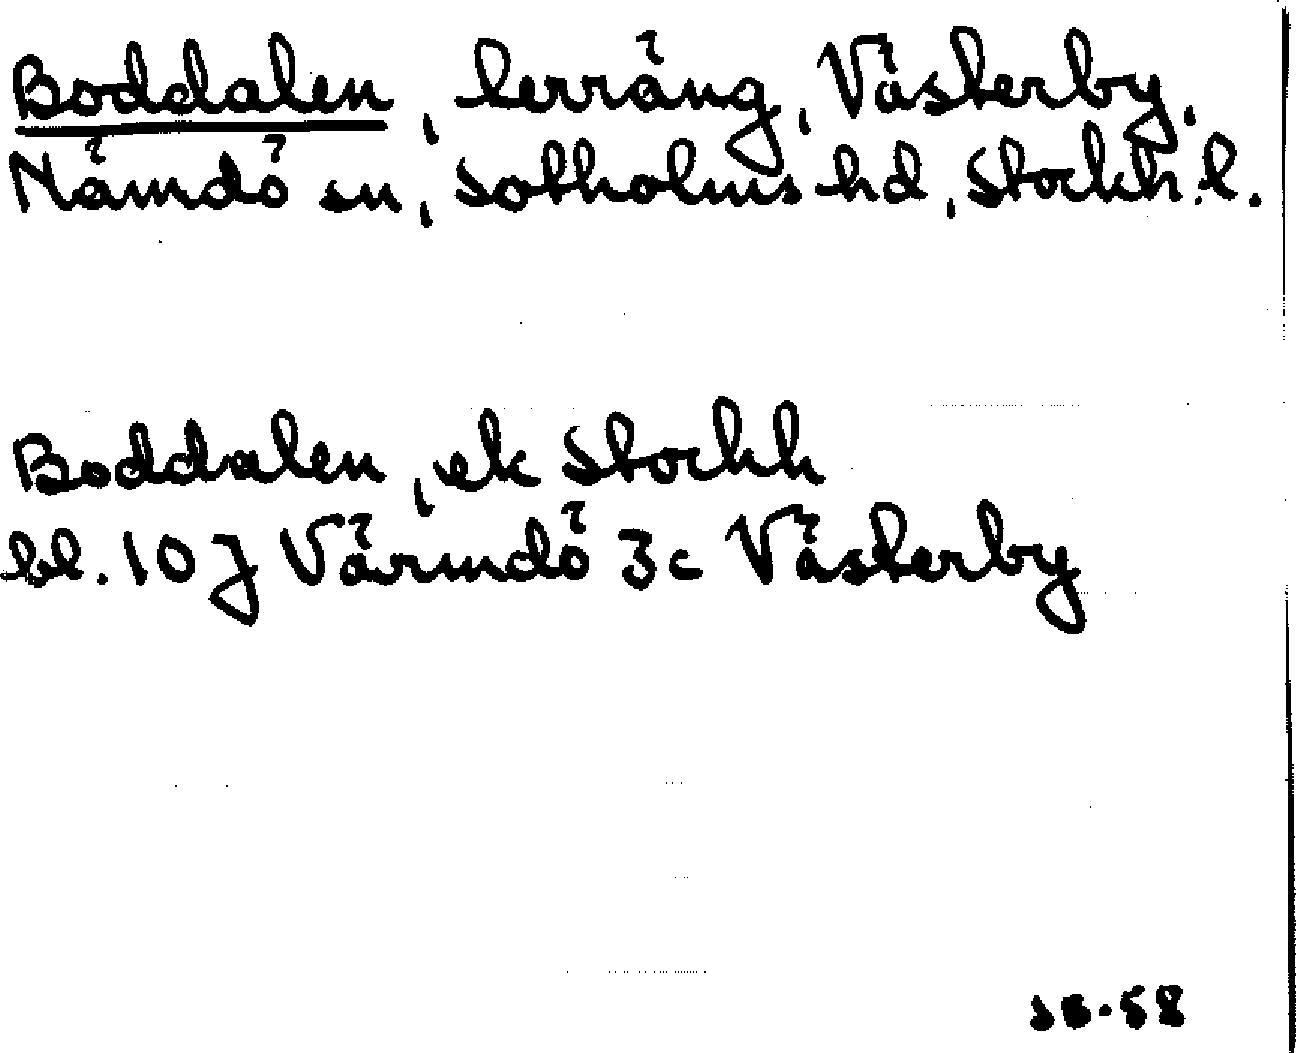 Boddalen, terräng, Västerby.
Nämdö sn, Sotholms hd, Stockh. l.
Boddalen, ek Stockh
bl. 10 J Värmdö 3c Västerby
SB-58